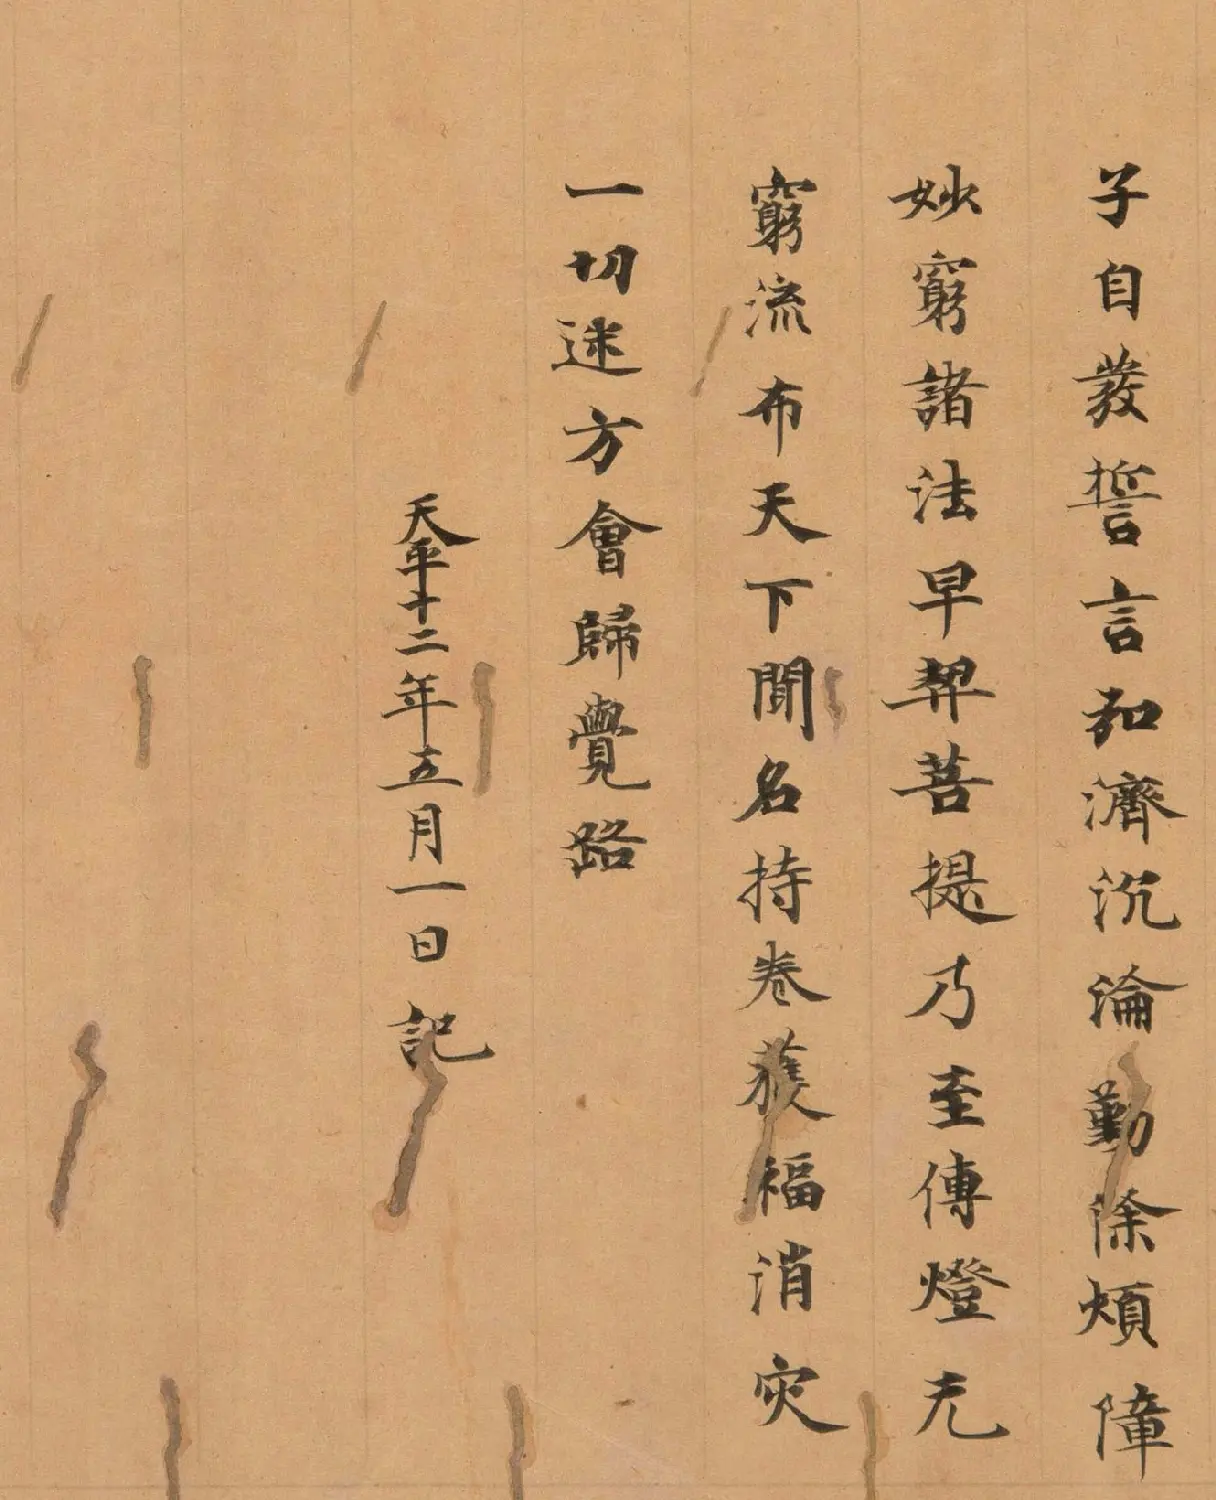 子自發誓言弘濟沉淪勤除煩障
妙窮諸法早契菩提乃至傳燈无
窮流布天下聞名持卷獲福消灾
一切迷方會歸覺路
天平十二年五月一日記